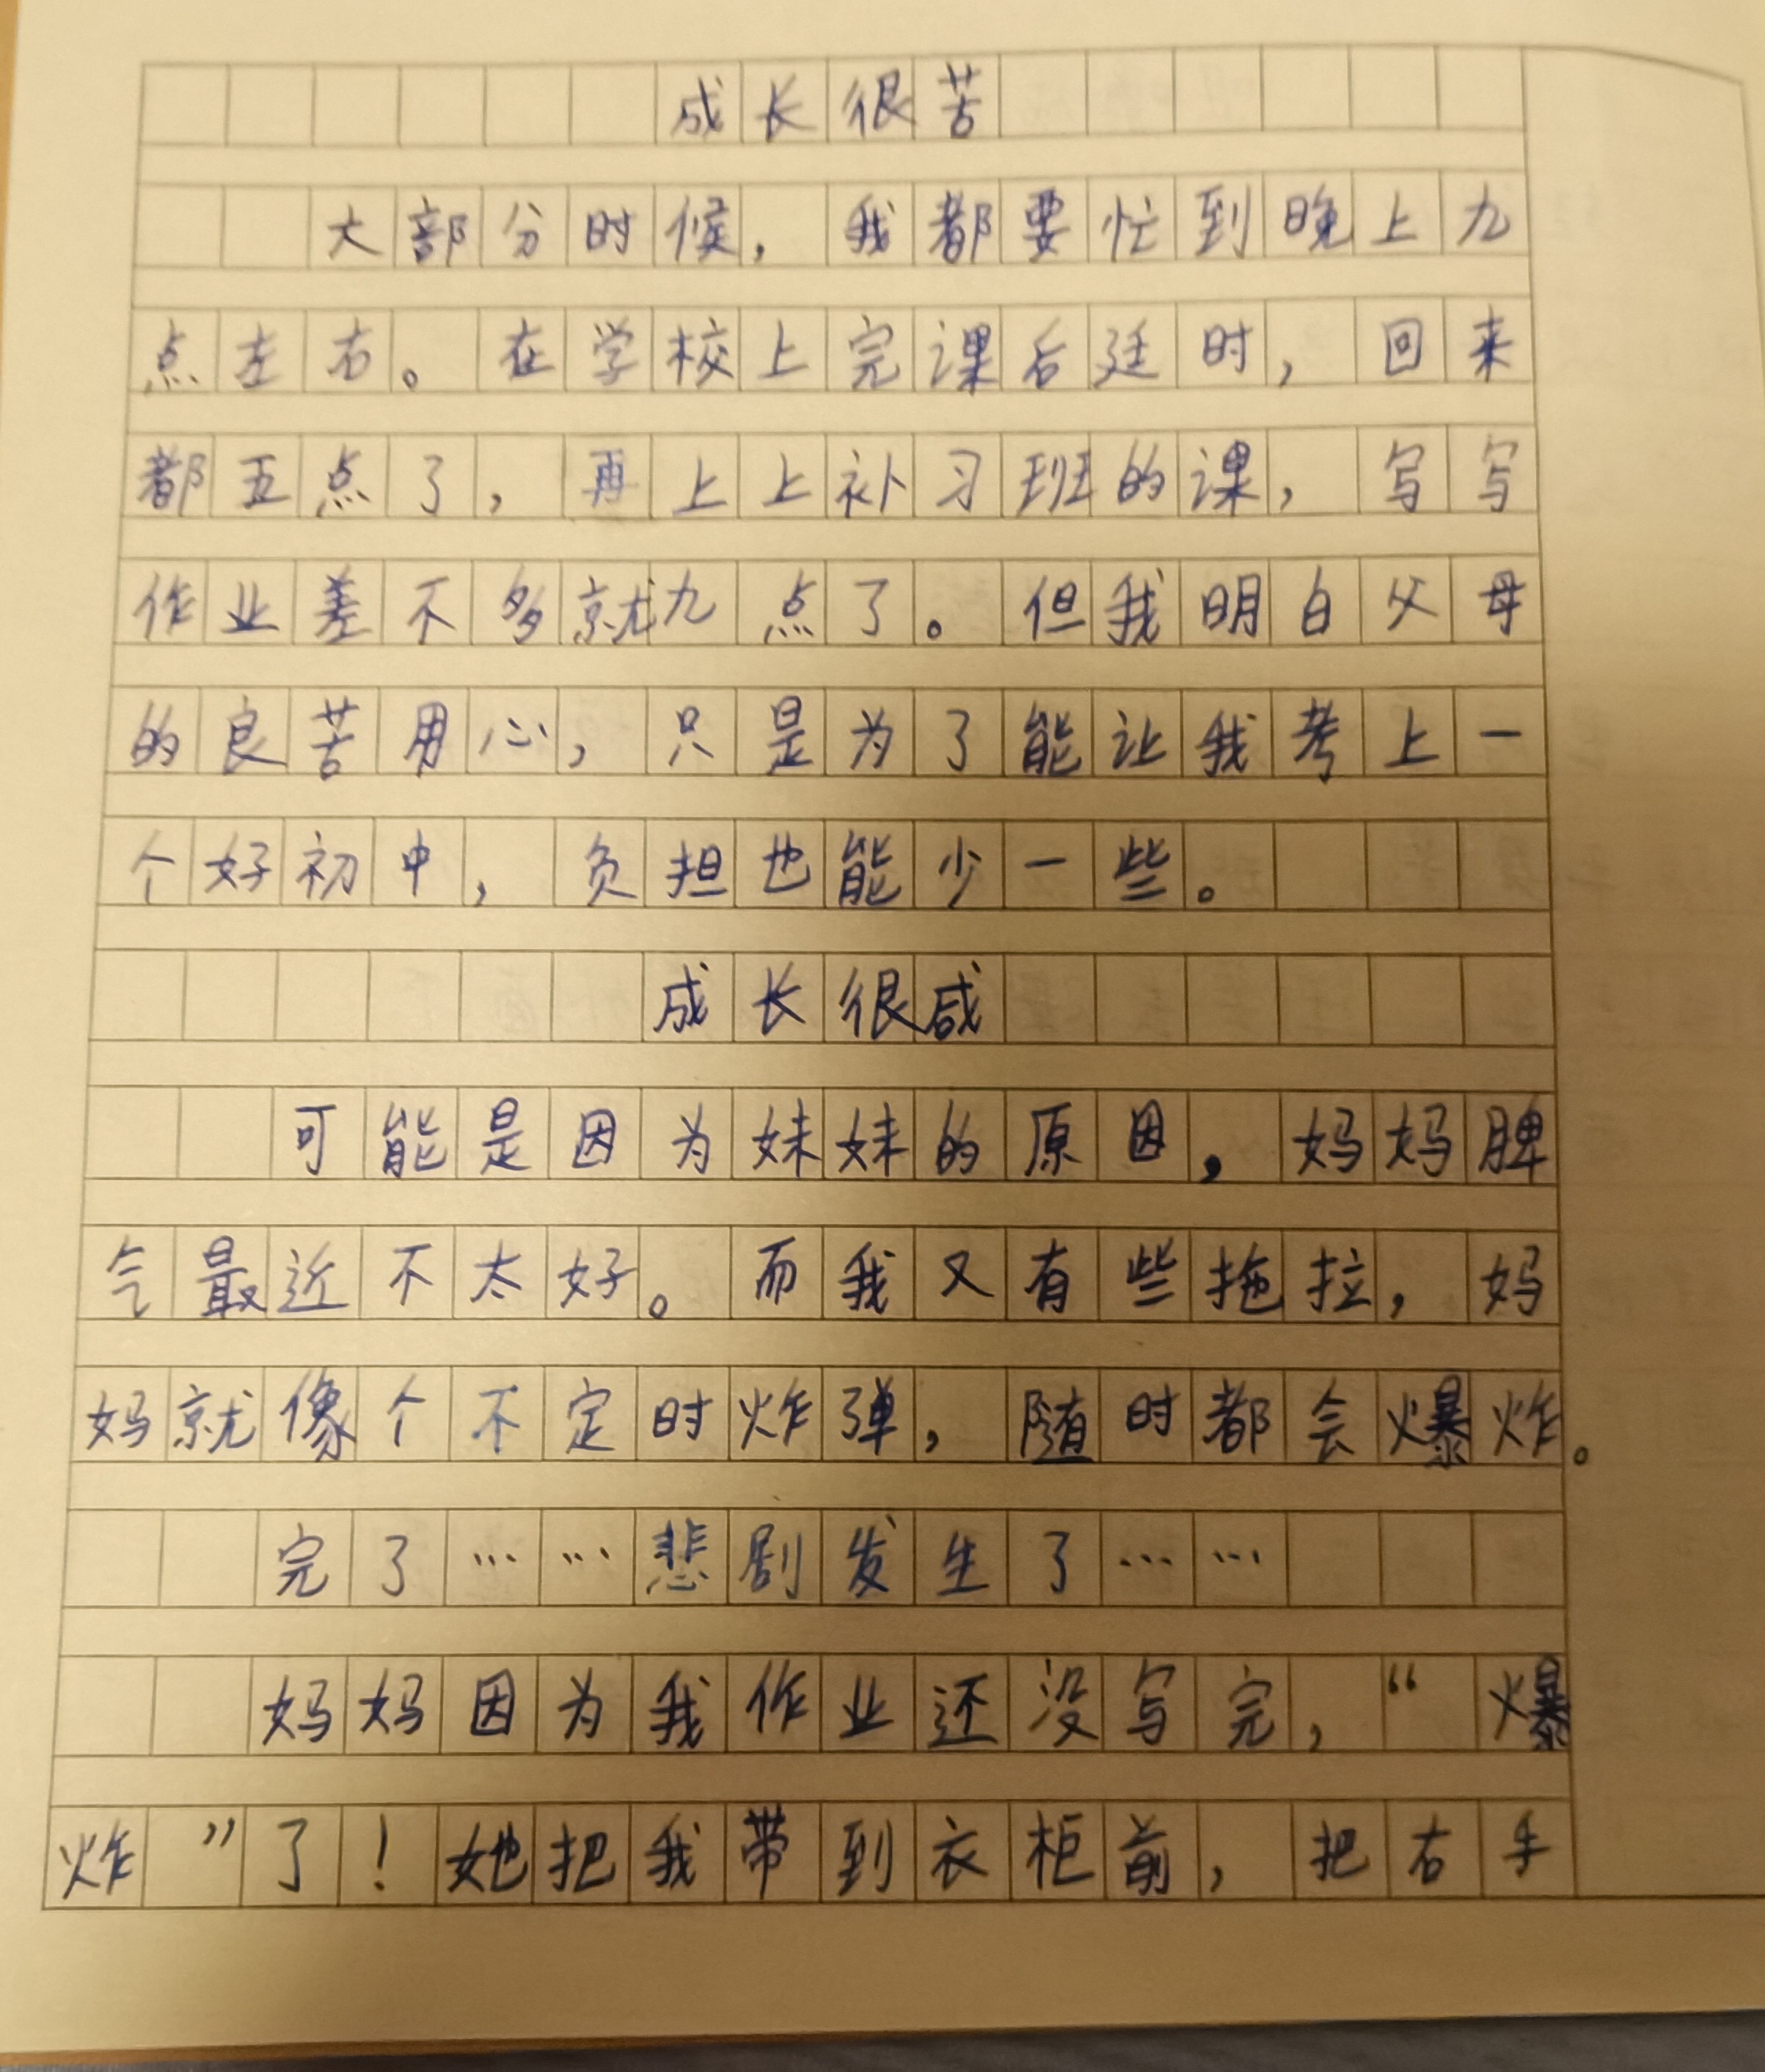 成长很苦
大部分时候，我都要忙到晚上九
点左右。在学校上完课后延时，回来
都五点了，再上上补习班的课，写写
作业差不多就九点了。但我明白父母
的良苦用心，只是为了能让我考上一
个好初中，负担也能少一些。
成长很咸
可能是因为妹妹的原因，妈妈脾
气最近不太好。而我又有些拖拉，妈
妈就像个不定时炸弹，随时都会爆炸。
完了……悲剧发生了……
妈妈因为我作业还没写完，“爆
炸”了！她把我带到衣柜前，把右手